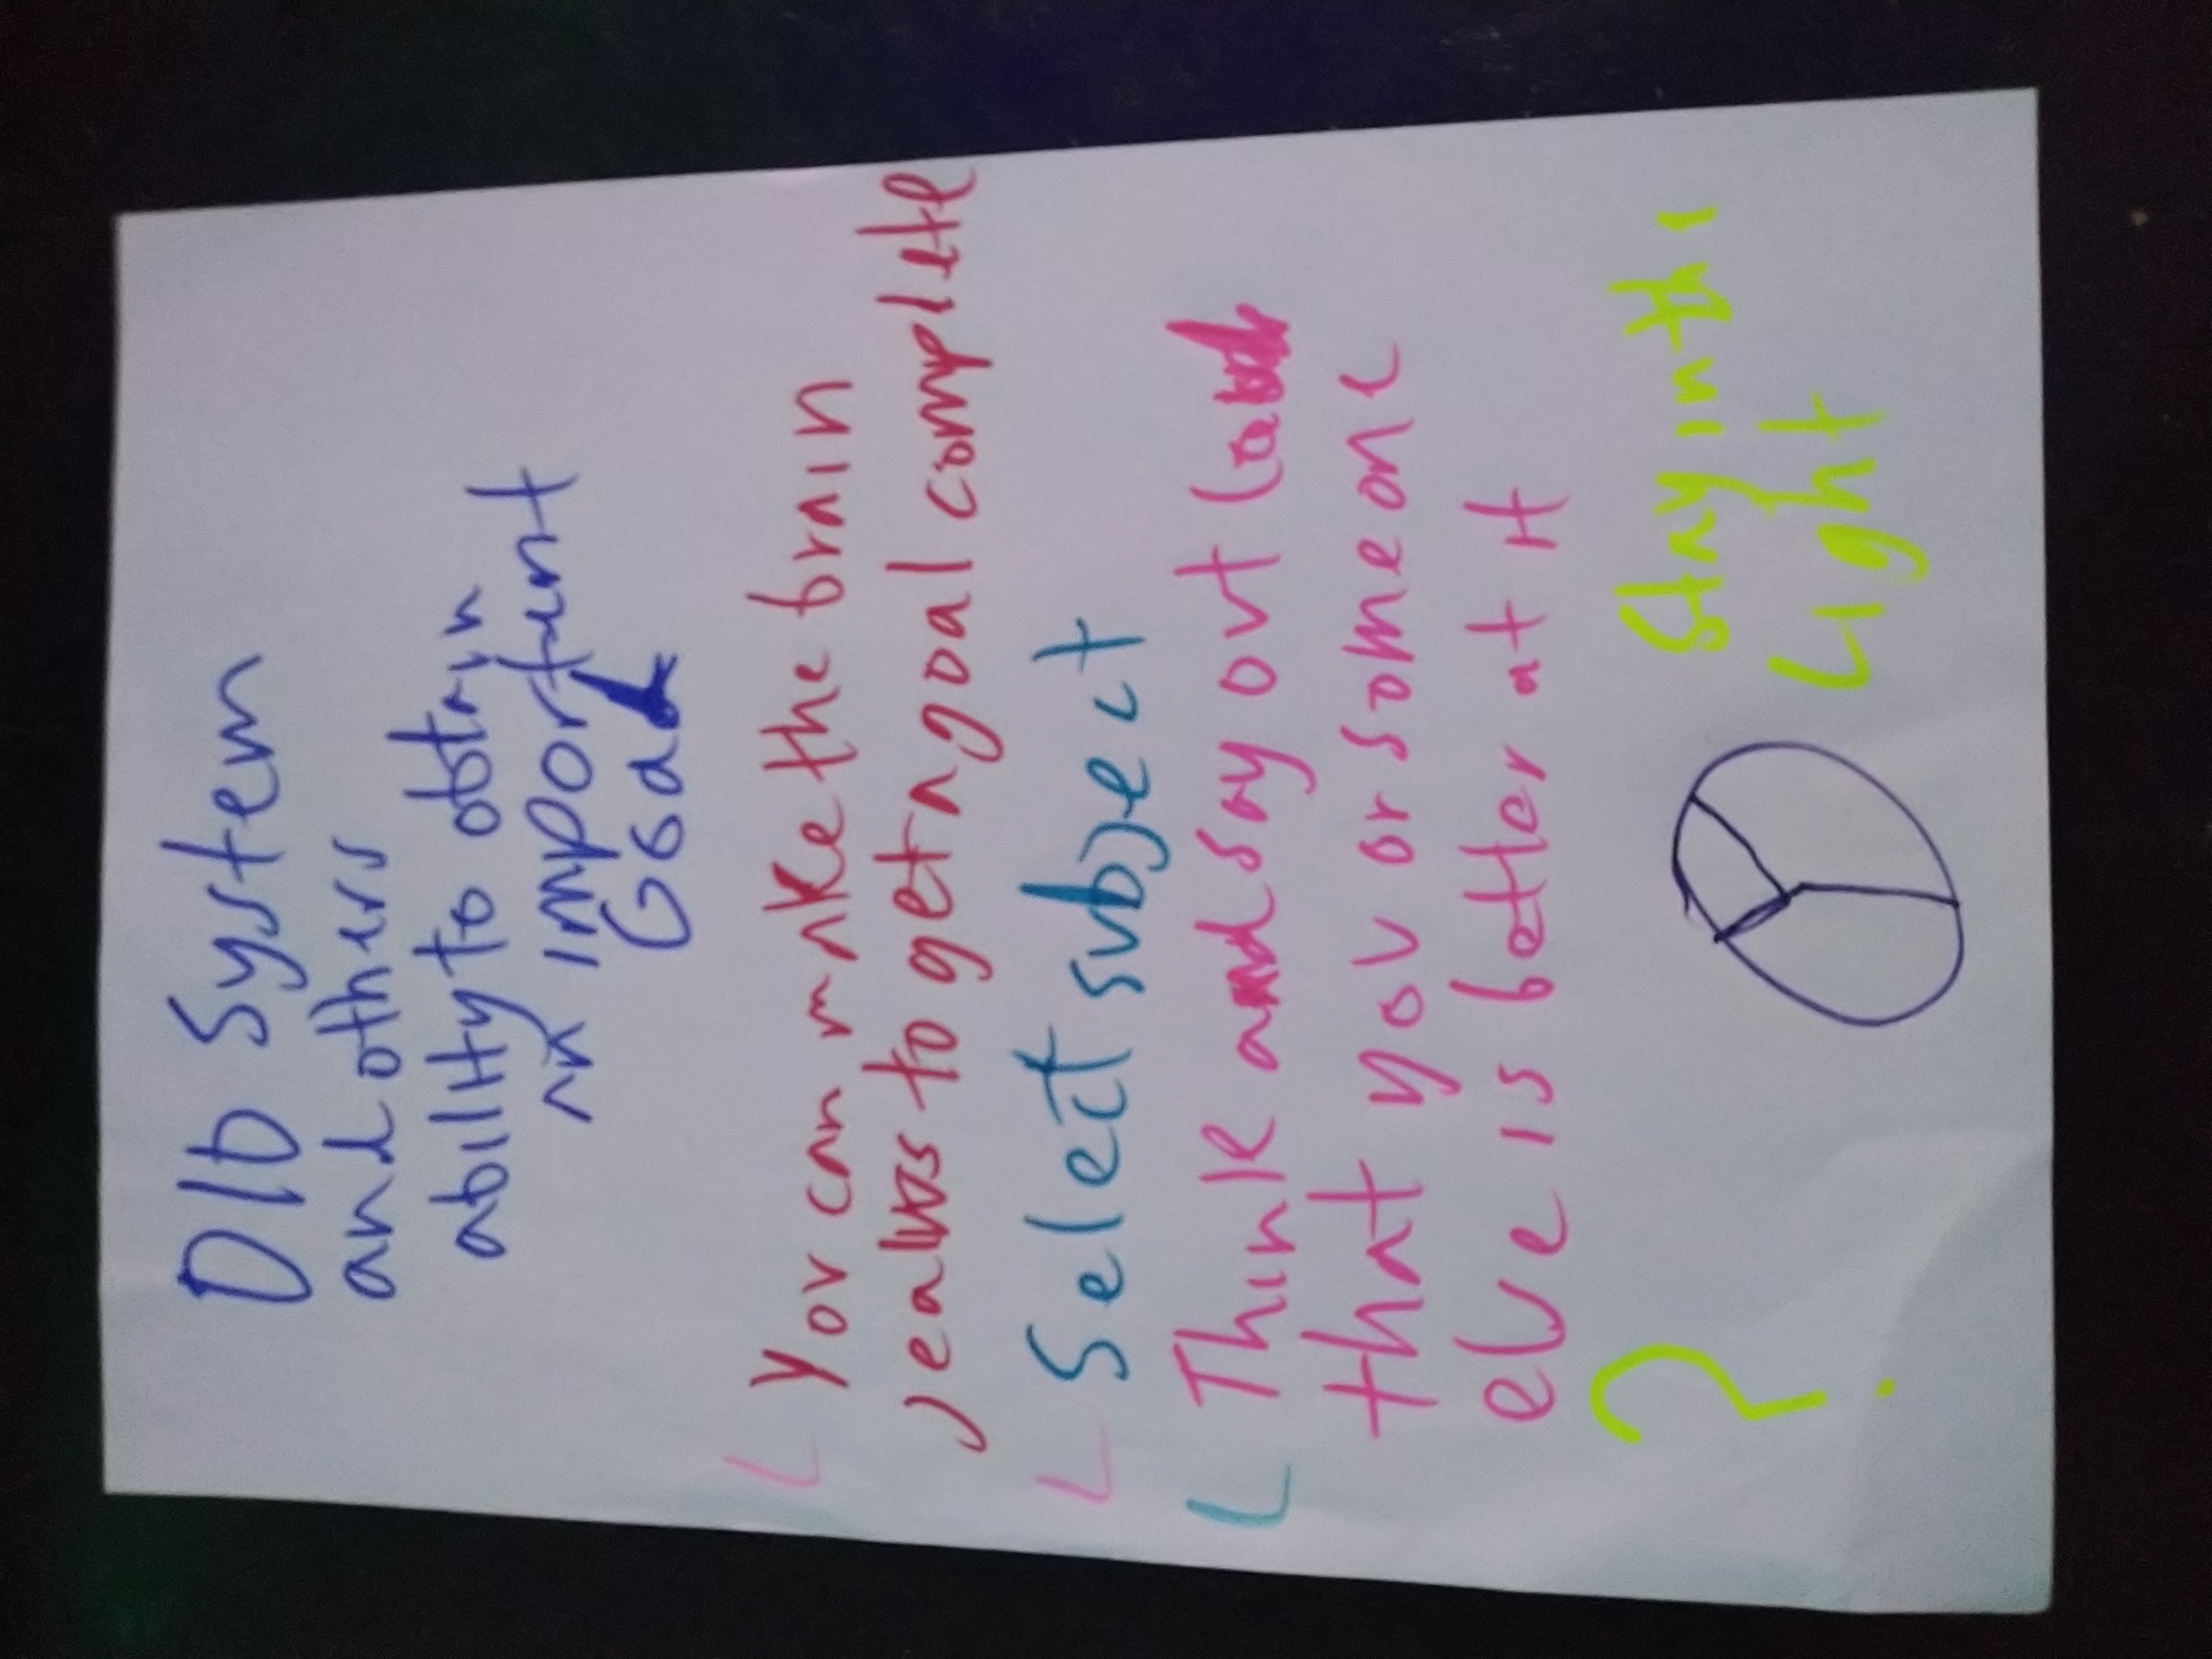 DIb System
and others
ability to obtain
an important
Goal
You can make the brain
jealous to get a goal complete
Select subject
Think and say out loud
that you or someone
else is better at it
?
Stay in the
Light